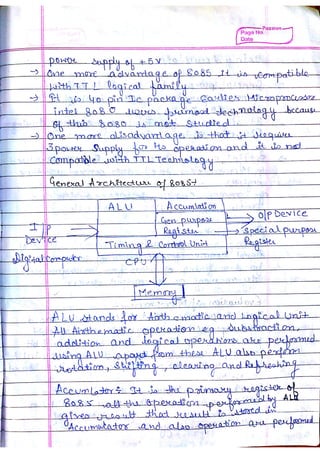 Page No.
Date
power supply of +5V
→ One more advantage of 8085 it is compatible
with TTL logical family
→ It is 40 pin Ic package Earlier Microprocessor
intel 8080 technology because
of this 8080 is not studied
→ One more disadvantage is that it require
3power supply for its operation and it is not
Compatible with TTL Technology
General Architecture of 8085→
ALU Accumulation
Gen. purpose
Register
O/P Device
I/P
Device
Special purpose
Register
Timing & Control Unit
Digital Computer
CPU
Memory
ALU stands for Arithematic and Logical Unit
All Airthematic operation eg Substraction,
addition and logical operations are performed
using ALU apart from these ALU also perform
rotation, Shifting, clearing and Refreshing
Accumlator: It is the primary register of
8085 all the operation performed by ALU
gives result that result is stored in
Accumulator and also operation are performed